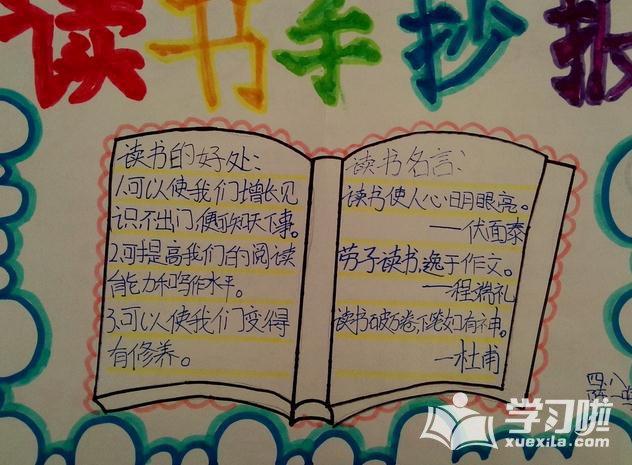 读书手抄报
读书的好处:
1.可以使我们增长见
识,不出门,便可知天下事。
2.可提高我们的阅读
能力和写作水平。
3.可以使我们变得
有修养。
读书名言:
读书使人心明眼亮。
——伏面泰
劳于读书,逸于作文。
——程端礼
读书破万卷,下笔如有神。
—杜甫
四八
学习啦
xuexila.com